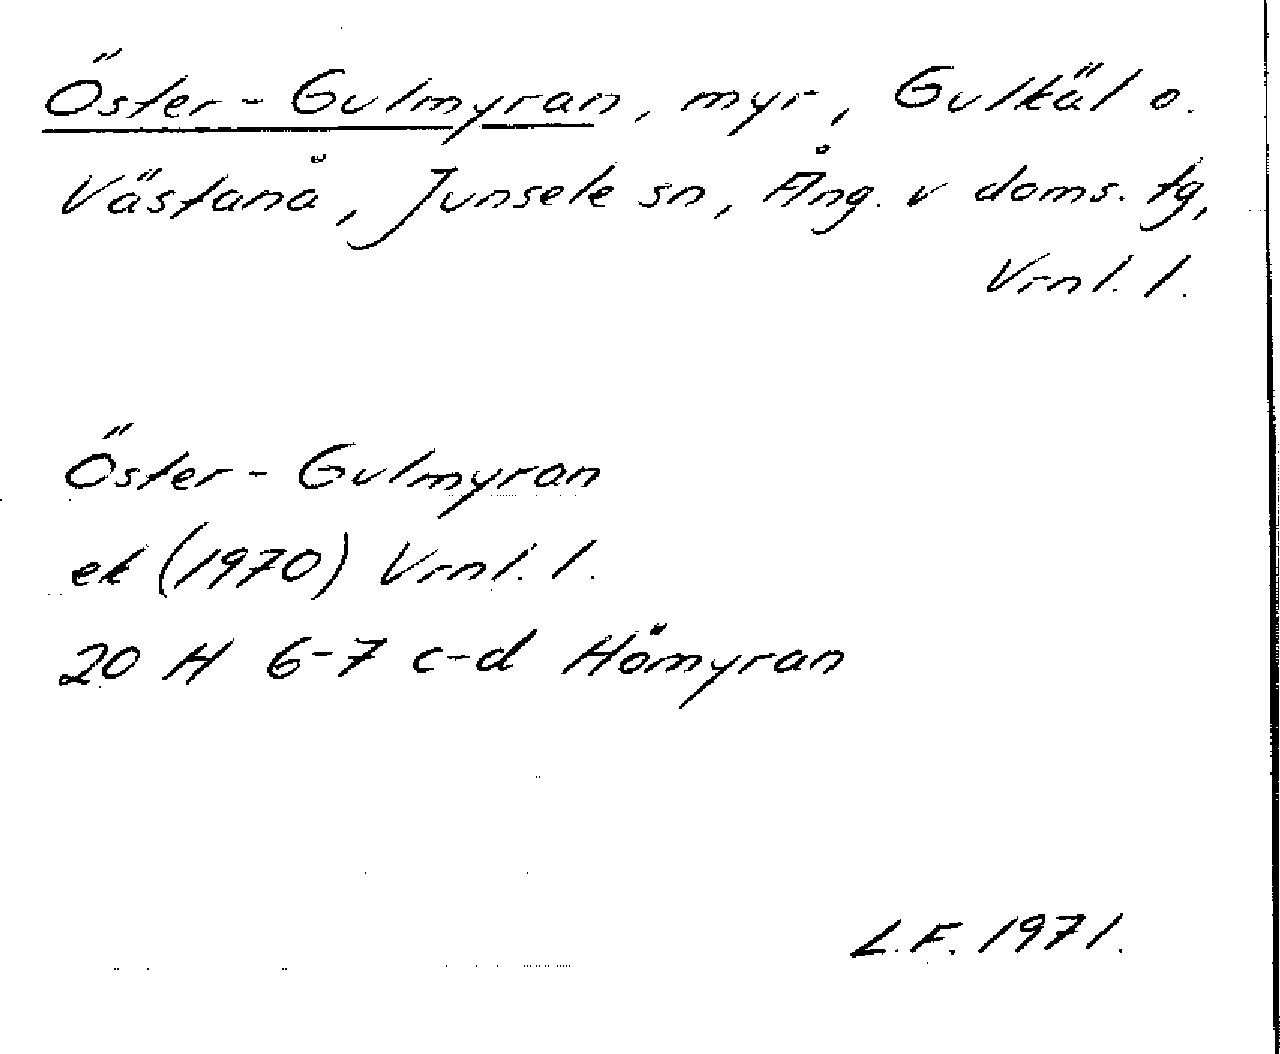 Öster-Gulmyran, myr, Gulkäl o.
Västanå, Junsele sn, Ång. v doms. tg,
Vrnl. l.
Öster-Gulmyran
ek (1970) Vrnl. l.
20 H 6-7 c-d Hömyran
L.F. 1971.